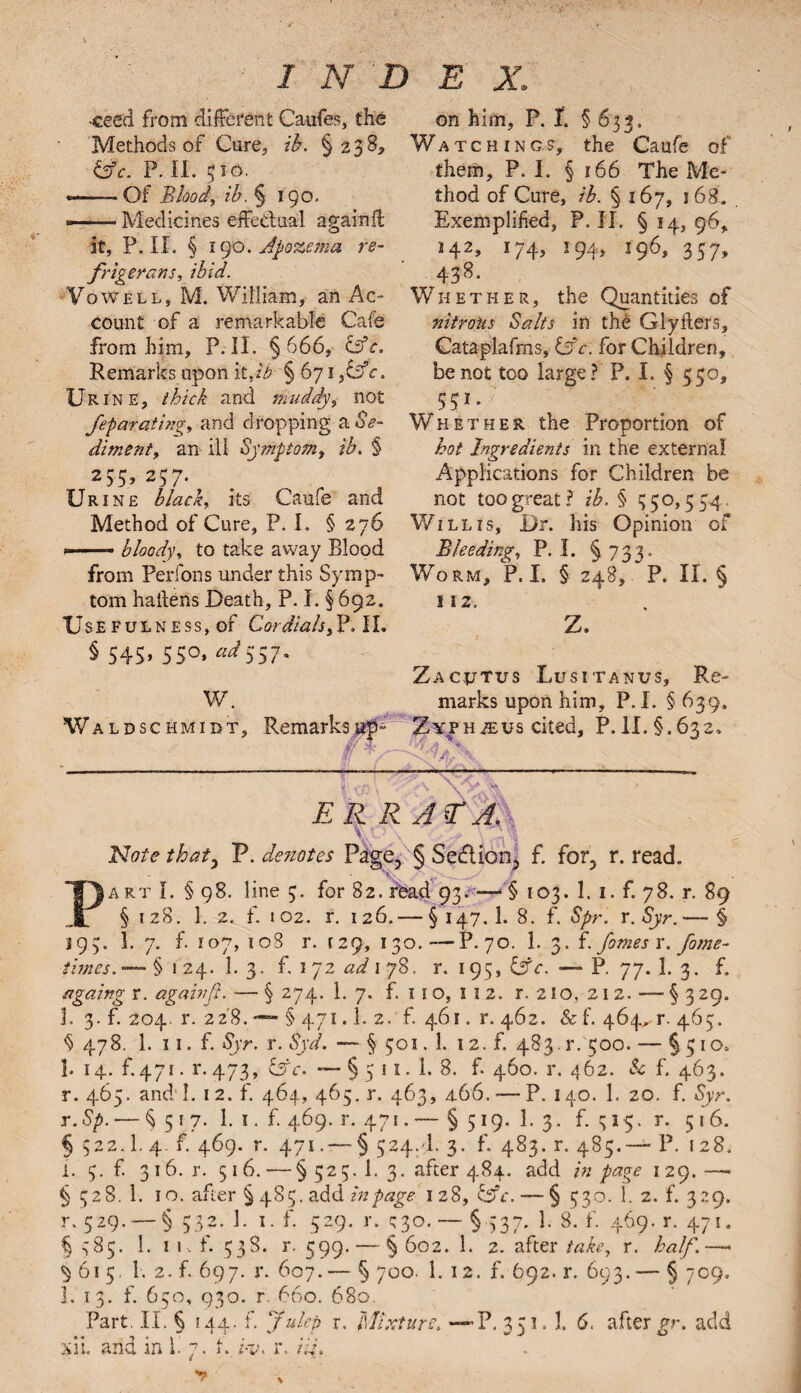 INDEX.
ceed from different Caufes, the
Methods of Cure, ib. § 238,
&c. P. II. 510.
—— Of Blood, ib. § 190.
—— Medicines effectual againſt
it, P. II. § 190. Apozema re-
frigerans, ibid.
Vowell, M. William, an Ac-
count of a remarkable Caſe
from him, P. II. § 666, &c.
Remarks upon it, ib § 671, &c.
Urine, thick and muddy, not
ſeparating, and dropping a Se-
diment, an ill Symptom, ib. §
255, 257.
Urine black, its Cauſe and
Method of Cure, P. I. § 276
—— bloody, to take away Blood
from Perſons under this Symp-
tom haſtens Death, P. I. § 692.
Usefulness, of Cordials, P. II.
§ 545, 550, ad 557.
W.
Waldschmidt, Remarks up-
on him, P. I. § 633.
Watchings, the Cauſe of
them, P. I. § 166 The Me-
thod of Cure, ib. § 167, 168.
Exemplified, P. II. § 14, 96,
142, 174, 194, 196, 357,
438.
Whether, the Quantities of
nitrous Salts in the Glyſters,
Cataplaſms, &c. for Children,
be not too large? P. I. § 550,
551.
Whether the Proportion of
hot Ingredients in the external
Applications for Children be
not too great? ib. § 550, 554.
Willis, Dr. his Opinion of
Bleeding, P. I. § 733.
Worm, P. I. § 248, P. II. §
112.
Z.
Zacutus Lusitanus, Re-
marks upon him, P. I. § 639.
Zyphæus cited, P. II. §. 632.
ERRATA.
Note that, P. denotes Page, § Section, f. for, r. read.
Part I. § 98. line 5. for 82. read 93. — § 103. l. 1. f. 78. r. 89
§ 128. l. 2. f. 102. r. 126. — § 147. l. 8. f. Spr. r. Syr. — §
195. l. 7. f. 107, 108 r. 129, 130. — P. 70. l. 3. f. fomes r. fome-
times. — § 124. l. 3. f. 172 ad 178. r. 195, &c. — P. 77. l. 3. f.
againg r. againſt. — § 274. l. 7. f. 110, 112. r. 210, 212. — § 329.
l. 3. f. 204. r. 228. — § 471. l. 2. f. 461. r. 462. & f. 464, r. 465.
§ 478. l. 11. f. Syr. r. Syd. — § 501. l. 12. f. 483 r. 500. — § 510.
l. 14. f. 471. r. 473, &c. — § 511. l. 8. f. 460. r. 462. & f. 463.
r. 465. and l. 12. f. 464, 465. r. 463, 466. — P. 140. l. 20. f. Syr.
r. Sp. — § 517. l. 1. f. 469. r. 471. — § 519. l. 3. f. 515. r. 516.
§ 522. l. 4 f. 469. r. 471. — § 524. l. 3. f. 483. r. 485. — P. 128.
l. 5. f. 316. r. 516. — § 525. l. 3. after 484. add in page 129. —
§ 528. l. 10. after § 485. add in page 128, &c. — § 530. l. 2. f. 329.
r. 529. — § 532. l. 1. f. 529. r. 530. — § 537. l. 8. f. 469. r. 471.
§ 585. l. 11. f. 538. r. 599. — § 602. l. 2. after take, r. half. —
§ 615. l. 2. f. 697. r. 607. — § 700. l. 12. f. 692. r. 693. — § 709.
l. 13. f. 650, 930. r. 660. 680.
Part. II. § 144. f. Julep r. Mixture. — P. 351. l. 6. after gr. add
xii. and in l. 7. f. iv. r. iij.